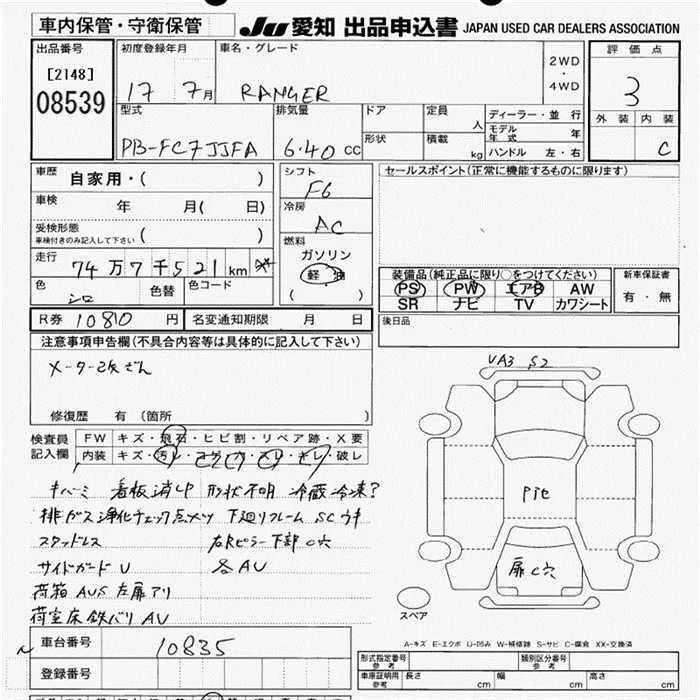 車内保管・守衛保管
JU 愛知 出品申込書 JAPAN USED CAR DEALERS ASSOCIATION
出品番号
[2148]
08539
初度登録年月
17 7月
車名・グレード
RANGER
2WD
・
4WD
評価点
3
外装 内装
C
型式
PB-FC7JJFA
排気量
6.40 cc
ドア
形状
定員
人
積載
kg
ディーラー・並行
モデル年式 年
ハンドル 左・右
車歴
自家用・( )
車検
年 月( 日)
受検形態
車検付きのみ記入して下さい ( )
走行
74万7千521km
色
シロ
色替
色コード
シフト
F6
冷房
AC
燃料
ガソリン
軽油
( )
セールスポイント(正常に機能するものに限ります)
装備品(純正品に限り○をつけてください)
PS PW エアB AW
SR ナビ TV カワシート
新車保証書
有・無
R券 10810 円
名変通知期限 月 日
後日品
注意事項申告欄(不具合内容等は具体的に記入して下さい)
メーター改ざん
修復歴 有 (箇所 )
検査員
記入欄
FW キズ・飛石・ヒビ割・リペア跡・X要
内装 キズ・汚レ・コゲ・穴・スレ・キレ・破レ
キバーミ 看板消し中 形状不明 冷蔵冷凍?
排ガス浄化チェック点メツ 下廻りフレーム SCウキ
スタッドレス 右Rピラー下部C穴
サイドガードU 各AU
荷箱AUS左扉アリ
荷室床鉄バリAU
VA3 S2
Pit
扉C穴
スペア
A-キズ E-エクボ U-凹み W-補修跡 S-サビ C-腐食 XX-交換済
車台番号
10835
登録番号
形式指定番号
参考
類別区分番号
参考
車庫証明用
参考
長さ cm
幅 cm
高さ cm